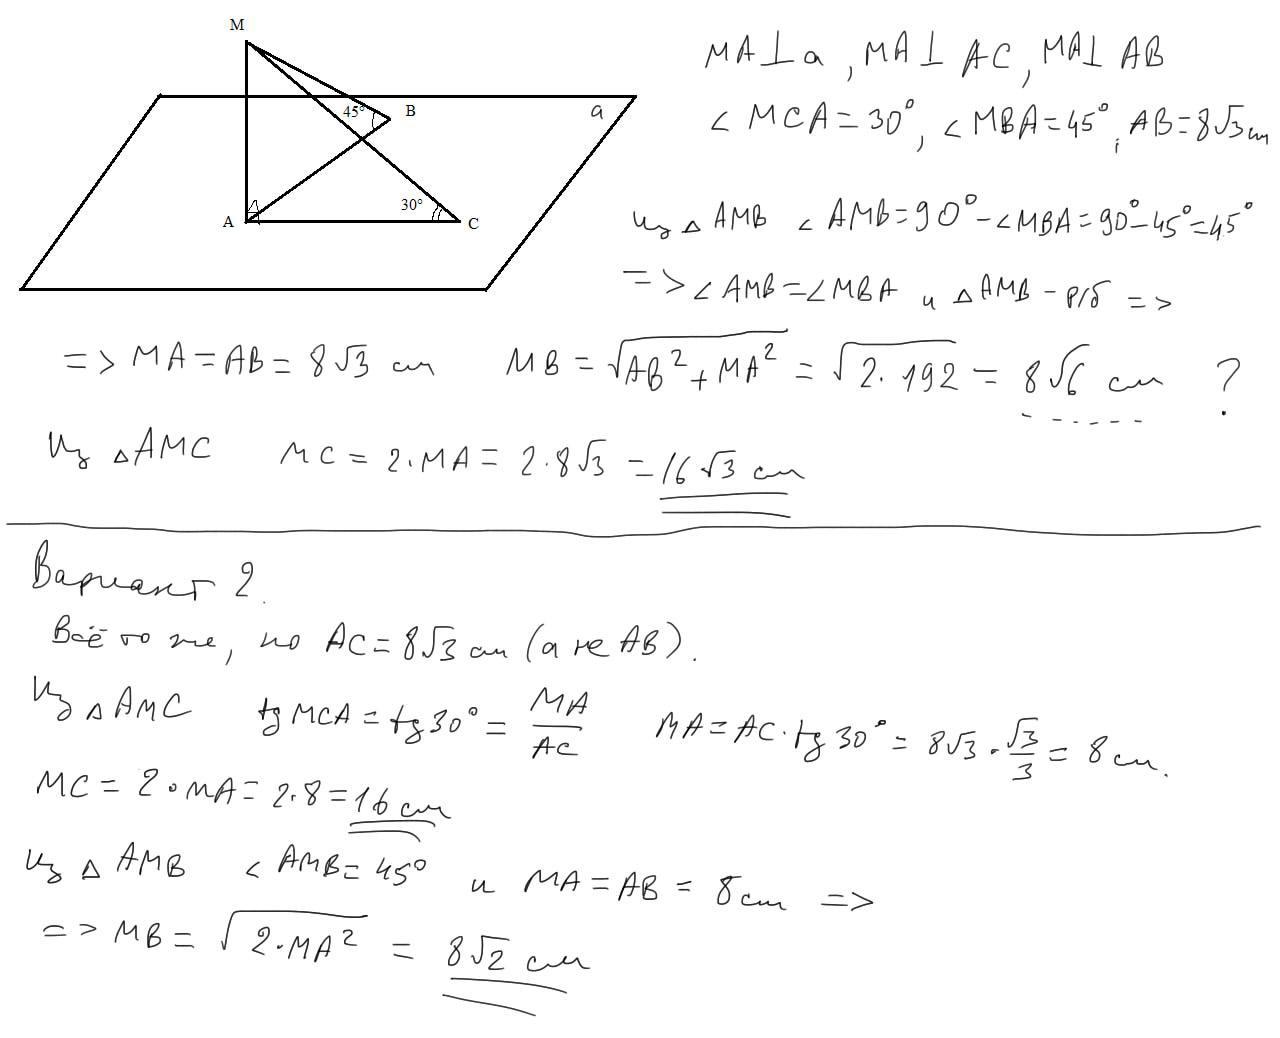 M
45°
B
a
A
30°
C
MA⊥a, MA⊥AC, MA⊥AB
∠MCA=30°, ∠MBA=45°, AB=8√3 см
Из △AMB ∠AMB=90°-∠MBA=90°-45°=45°
=> ∠AMB=∠MBA и △AMB - р/б =>
=> MA=AB=8√3 см MB=√(AB²+MA²)=√(2·192)=8√6 см ?
Из △AMC MC=2·MA=2·8√3=16√3 см
Вариант 2.
Всё то же, но AC=8√3 см (а не AB).
Из △AMC tg MCA=tg 30°=MA/AC MA=AC·tg 30°=8√3·√3/3=8 см.
MC=2·MA=2·8=16 см
Из △AMB ∠AMB=45° и MA=AB=8 см =>
=> MB=√(2·MA²)=8√2 см